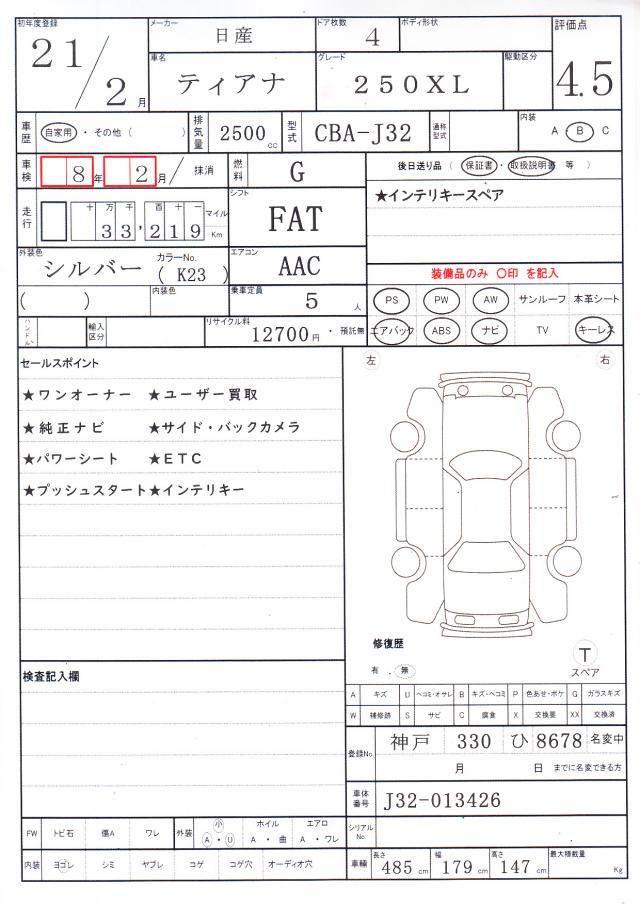 初年度登録 21/2月 メーカー 日産 ドア枚数 4 ボディ形状 評価点 4.5
車名 ティアナ グレード 250XL 駆動区分
車歴 自家用・その他( ) 排気量 2500cc 型式 CBA-J32 通称型式 内装 A・B C
車検 8年 2月/ 抹消 燃料 G 後日送り品(保証書・取扱説明書 等)
走行 十万千百十一 33,219 マイル Km シフト FAT ★インテリキースペア
外装色 シルバー カラーNo. (K23) エアコン AAC 装備品のみ 〇印 を記入
( ) 内装色 乗車定員 5人 PS PW AW サンルーフ 本革シート
ハンドル 輸入区分 リサイクル料 12700円・預託無 エアバック ABS ナビ TV キーレス
セールスポイント 左 右
★ワンオーナー ★ユーザー買取
★純正ナビ ★サイド・バックカメラ
★パワーシート ★ETC
★プッシュスタート★インテリキー
修復歴
有 . 無 T スペア
検査記入欄
A キズ U ヘコミ・オサレ B キズ・ヘコミ P 色あせ・ボケ G ガラスキズ
W 補修跡 S サビ C 腐食 X 交換要 XX 交換済
登録No. 神戸 330 ひ 8678 名変中
月 日 までに名変できる方
車体番号 J32-013426
FW トビ石 傷A ワレ 外装 小 A・U ホイル A・曲 エアロ A・ワレ シリアルNo
内装 ヨゴレ シミ ヤブレ コゲ コゲ穴 オーディオ穴 車輌 長さ 485cm 幅 179cm 高さ 147cm 最大積載量 Kg